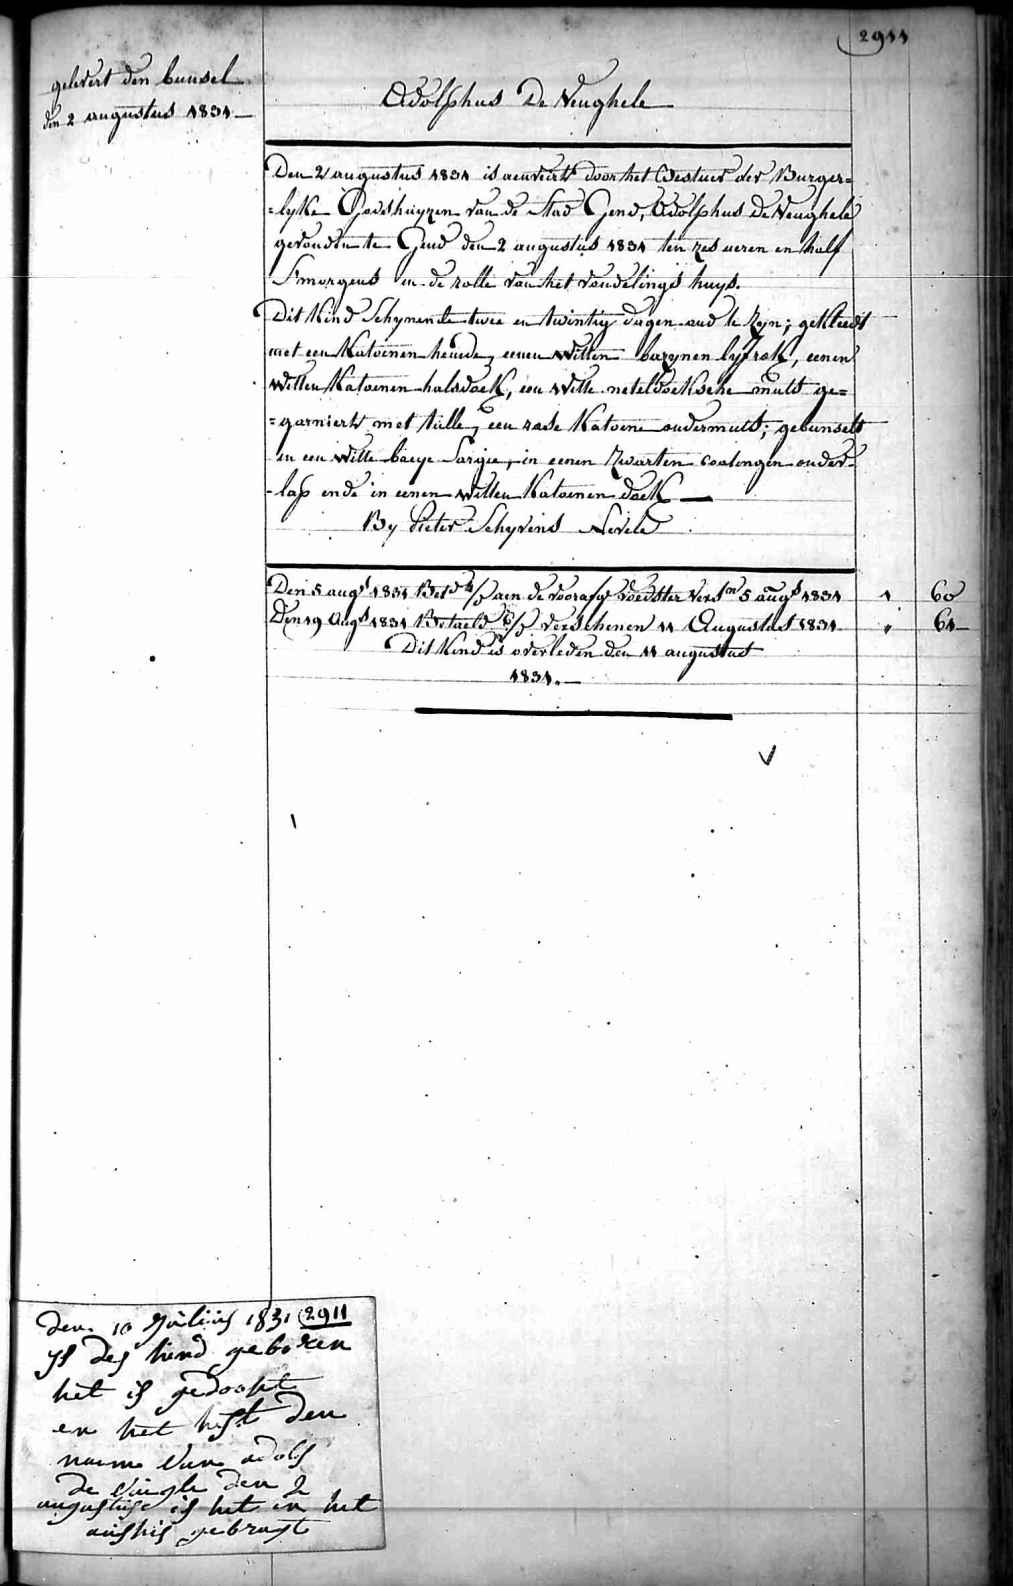 2911
gelevert den bunsel
den 2 augustus 1831
Adolphus De Neughele
Den 2 augustus 1831 is aenveirt door het Bestuer der Burger=
=lyke Godshuyzen van de Stad Gend, Adolphus De Neughele
gevonden te Gend den 2 augustus 1831 ten zes ueren en half
S'morgens in de rolle van het vondelings huys.
Dit Kind Schynende twee en twintig dagen oud te zyn; gekleedt
met een Katoenen hemde, eenen Witten bazynen lyfrok, eenen
Witten Katoenen halsdoek, een Witte neteldoeksche muts ge=
=garniert met tulle, een rose Katoene ondermuts; gebunselt
in een Witte baeye Sargie, in eenen Zwarten coatingen onder-
-lap ende in eenen Witten Katoenen doek
By Pieter Schyvens Nevele
Den 5 augt 1831 aen de voorzge voedster Versn 5 augs 1831 1 60
Den 19 Augs 1831 Betaeld verschenen 11 Augustus 1831 " 64
Dit Kind is overleden den 11 augustus
1831.
den 10 Julius 1831 2911
ys des kind geboren
het is gedoopt
en het heft den
naeme van adolf
de den 2
augustus is het in het
gebragt